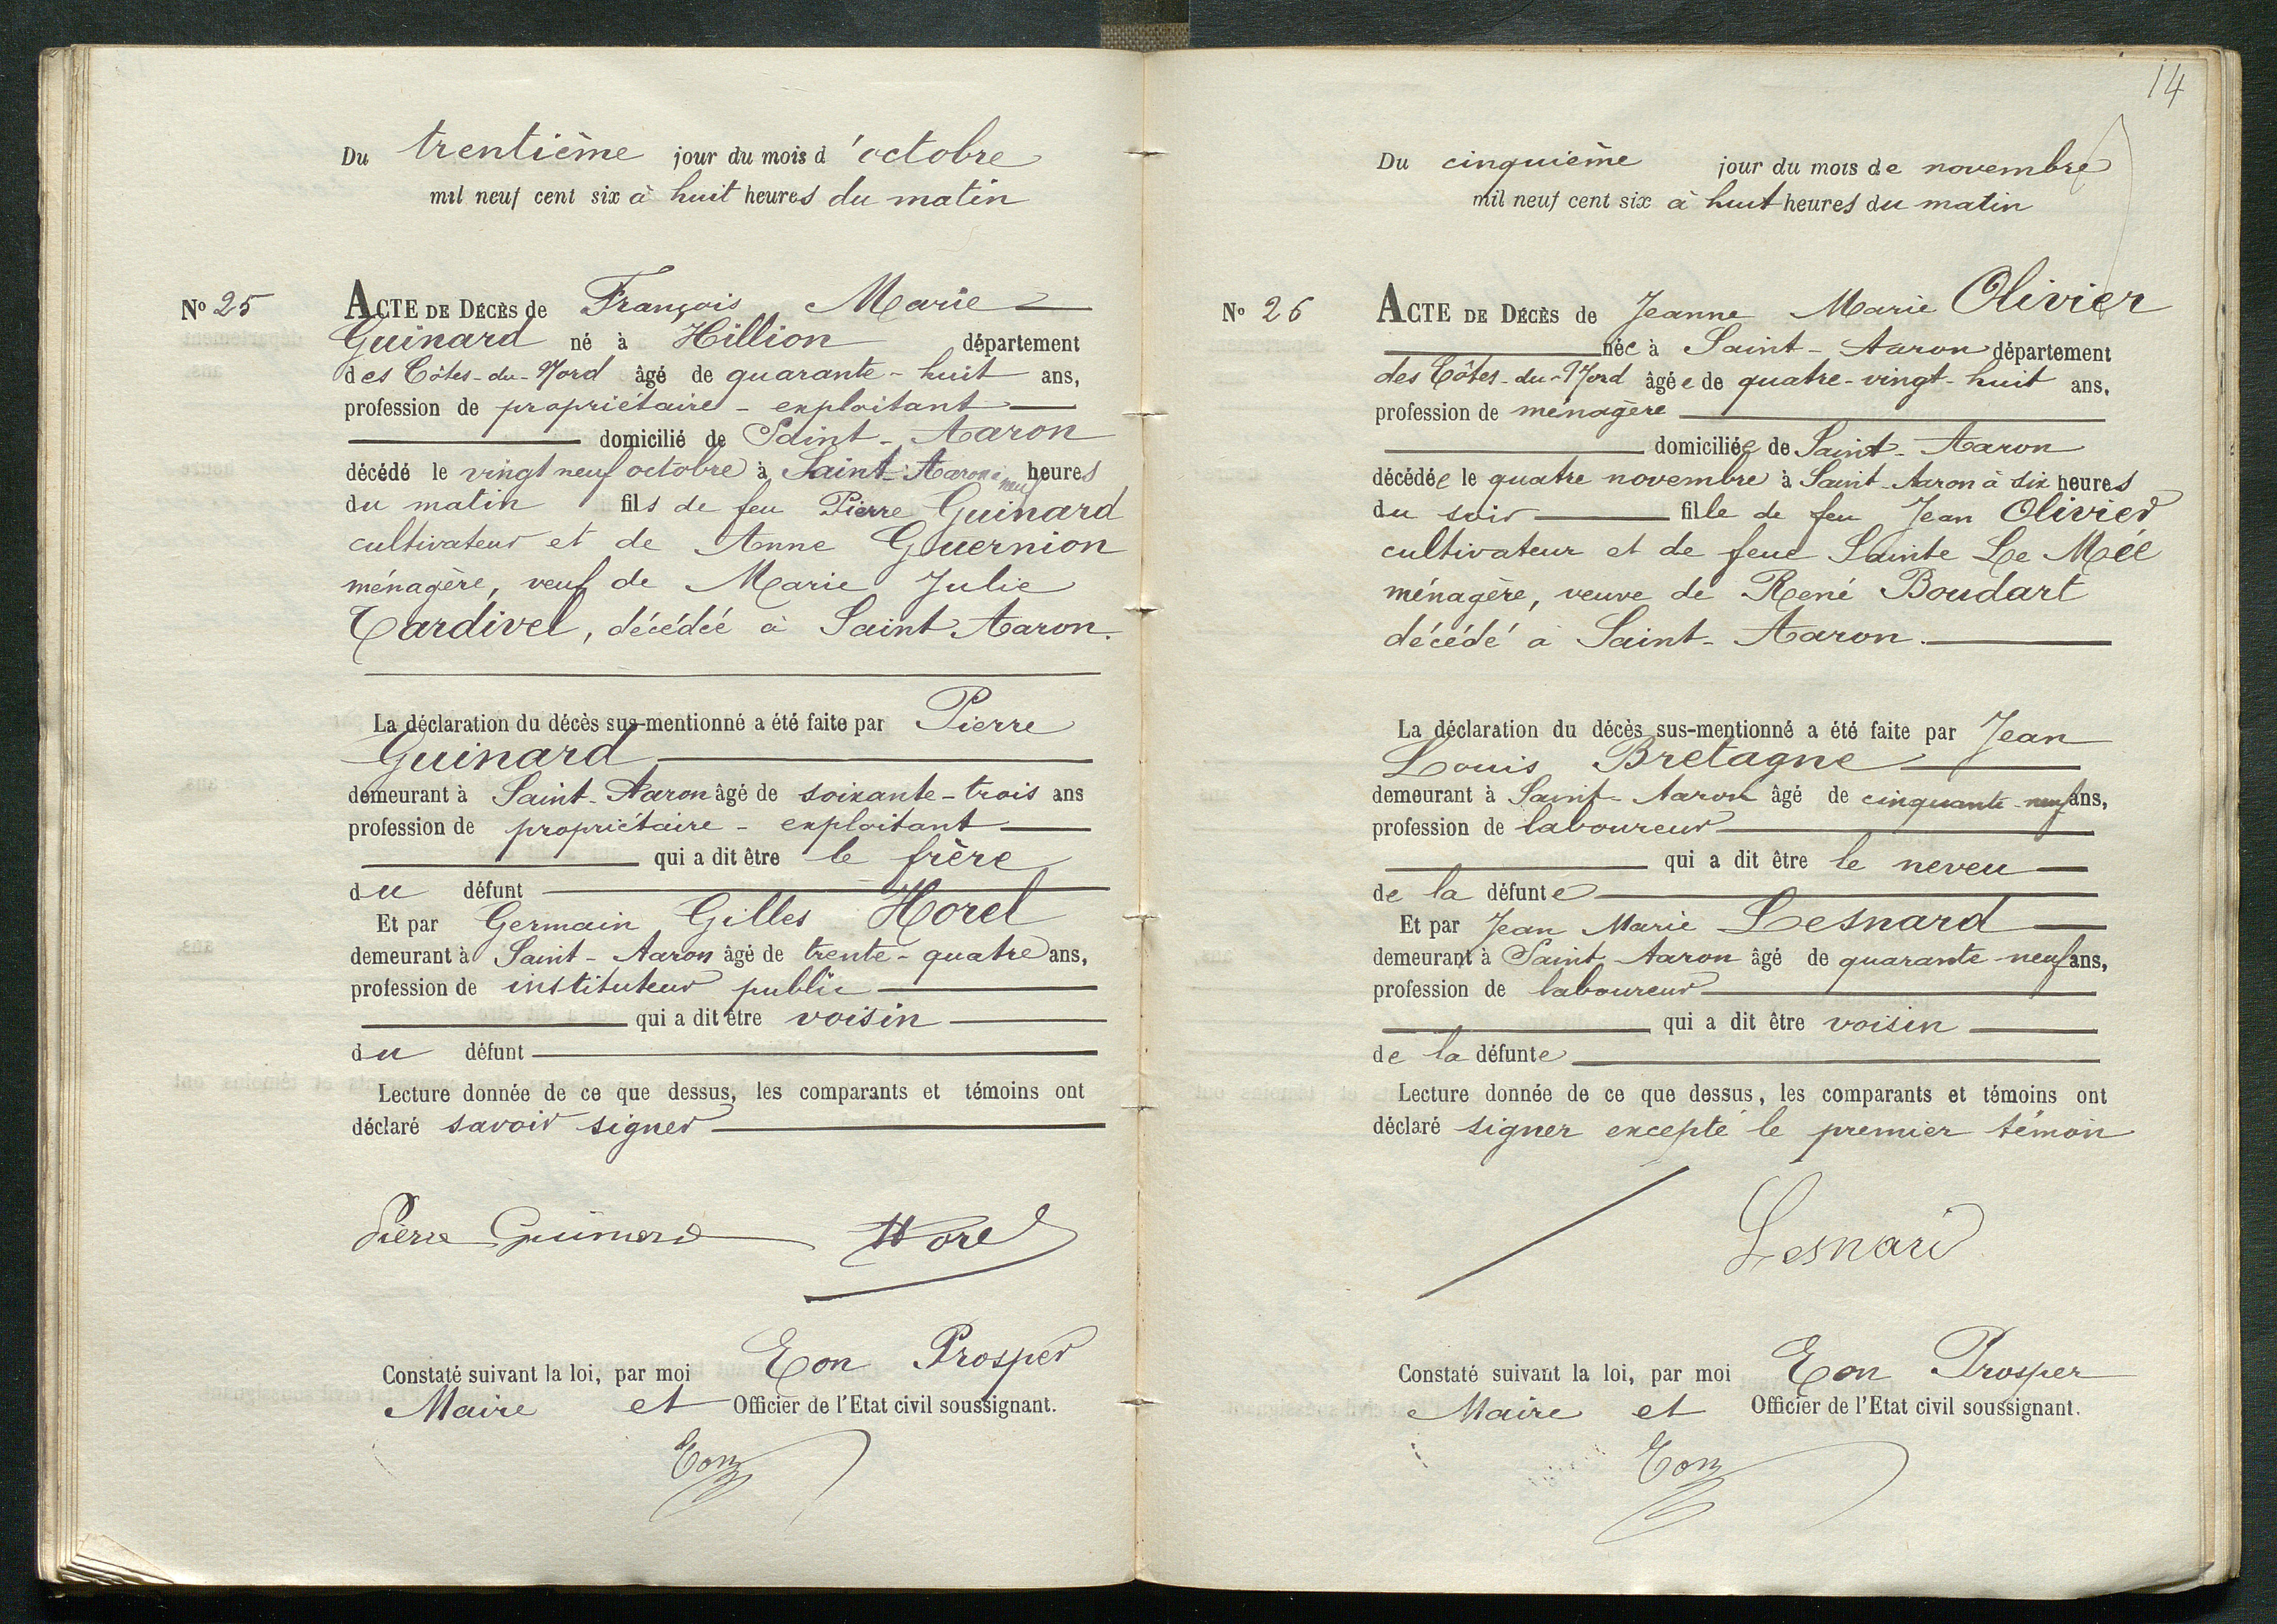 Du trentième jour du mois d'octobre
mil neuf cent six à huit heures du matin
No 25
ACTE DE DÉCÈS de François Marie
Guinard né à Hillion département
des Côtes-du-Nord âgé de quarante-huit ans,
profession de propriétaire-exploitant
domicilié de Saint-Aaron
décédé le vingt neuf octobre à Saint-Aaron à neuf heures
du matin fils de feu Pierre Guinard
cultivateur et de Anne Guernion
ménagère, veuf de Marie Julie
Tardivel, décédée à Saint Aaron.
La déclaration du décès sus-mentionné a été faite par Pierre
Guinard
demeurant à Saint-Aaron âgé de soixante-trois ans
profession de propriétaire-exploitant
qui a dit être le frère
du défunt
Et par Germain Gilles Horel
demeurant à Saint-Aaron âgé de trente-quatre ans,
profession de instituteur public
qui a dit être voisin
du défunt
Lecture donnée de ce que dessus, les comparants et témoins ont
déclaré savoir signer
Pierre Guinard Horel
Constaté suivant la loi, par moi Eon Prosper
Maire et Officier de l'Etat civil soussignant.
Eon
14
Du cinquième jour du mois de novembre
mil neuf cent six à huit heures du matin
No 26
ACTE DE DÉCÈS de Jeanne Marie Olivier
née à Saint-Aaron département
des Côtes-du-Nord âgée de quatre-vingt-huit ans,
profession de ménagère
domiciliée de Saint-Aaron
décédée le quatre novembre à Saint-Aaron à six heures
du soir fille de feu Jean Olivier
cultivateur et de feue Sainte Le Mée
ménagère, veuve de René Boudart
décédé à Saint-Aaron.
La déclaration du décès sus-mentionné a été faite par Jean
Louis Bretagne
demeurant à Saint-Aaron âgé de cinquante-neuf ans,
profession de laboureur
qui a dit être le neveu
de la défunte
Et par Jean Marie Lesnard
demeurant à Saint-Aaron âgé de quarante-neuf ans,
profession de laboureur
qui a dit être voisin
de la défunte
Lecture donnée de ce que dessus, les comparants et témoins ont
déclaré signer excepté le premier témoin
Lesnard
Constaté suivant la loi, par moi Eon Prosper
Maire et Officier de l'Etat civil soussignant.
Eon